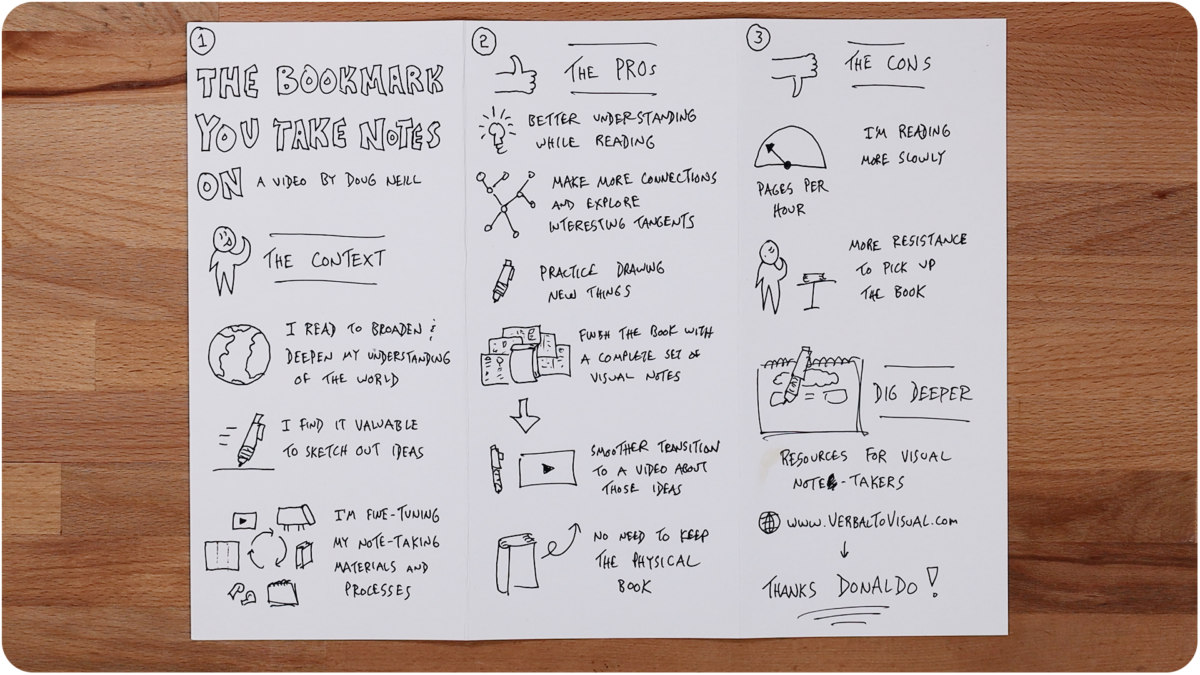 1
THE BOOKMARK
YOU TAKE NOTES
ON A VIDEO BY DOUG NEILL
THE CONTEXT
I READ TO BROADEN &
DEEPEN MY UNDERSTANDING
OF THE WORLD
I FIND IT VALUABLE
TO SKETCH OUT IDEAS
I'M FINE-TUNING
MY NOTE-TAKING
MATERIALS AND
PROCESSES
2
THE PROS
BETTER UNDERSTANDING
WHILE READING
MAKE MORE CONNECTIONS
AND EXPLORE
INTERESTING TANGENTS
PRACTICE DRAWING
NEW THINGS
FINISH THE BOOK WITH
A COMPLETE SET OF
VISUAL NOTES
SMOOTHER TRANSITION
TO A VIDEO ABOUT
THOSE IDEAS
NO NEED TO KEEP
THE PHYSICAL
BOOK
3
THE CONS
I'M READING
MORE SLOWLY
PAGES PER
HOUR
MORE RESISTANCE
TO PICK UP
THE BOOK
DIG DEEPER
RESOURCES FOR VISUAL
NOTE-TAKERS
WWW.VERBALTOVISUAL.COM
THANKS DONALDO!